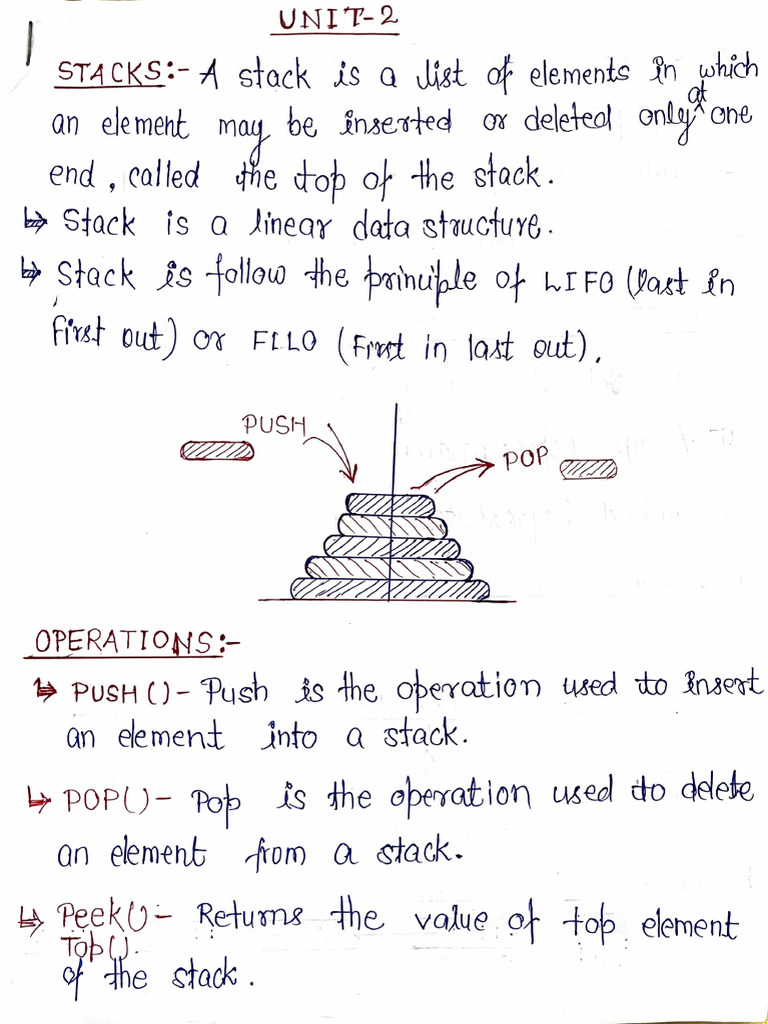 UNIT-2
STACKS:- A stack is a list of elements in which
an element may be inserted or deleted only at one
end, called the top of the stack.
↳ Stack is a linear data structure.
↳ Stack is follow the principle of LIFO (last in
first out) or FILO (First in last out).
PUSH
POP
OPERATIONS:-
↳ PUSH () - Push is the operation used to insert
an element into a stack.
↳ POP() - Pop is the operation used to delete
an element from a stack.
↳ Peek() - Returns the value of top element
Top().
of the stack.